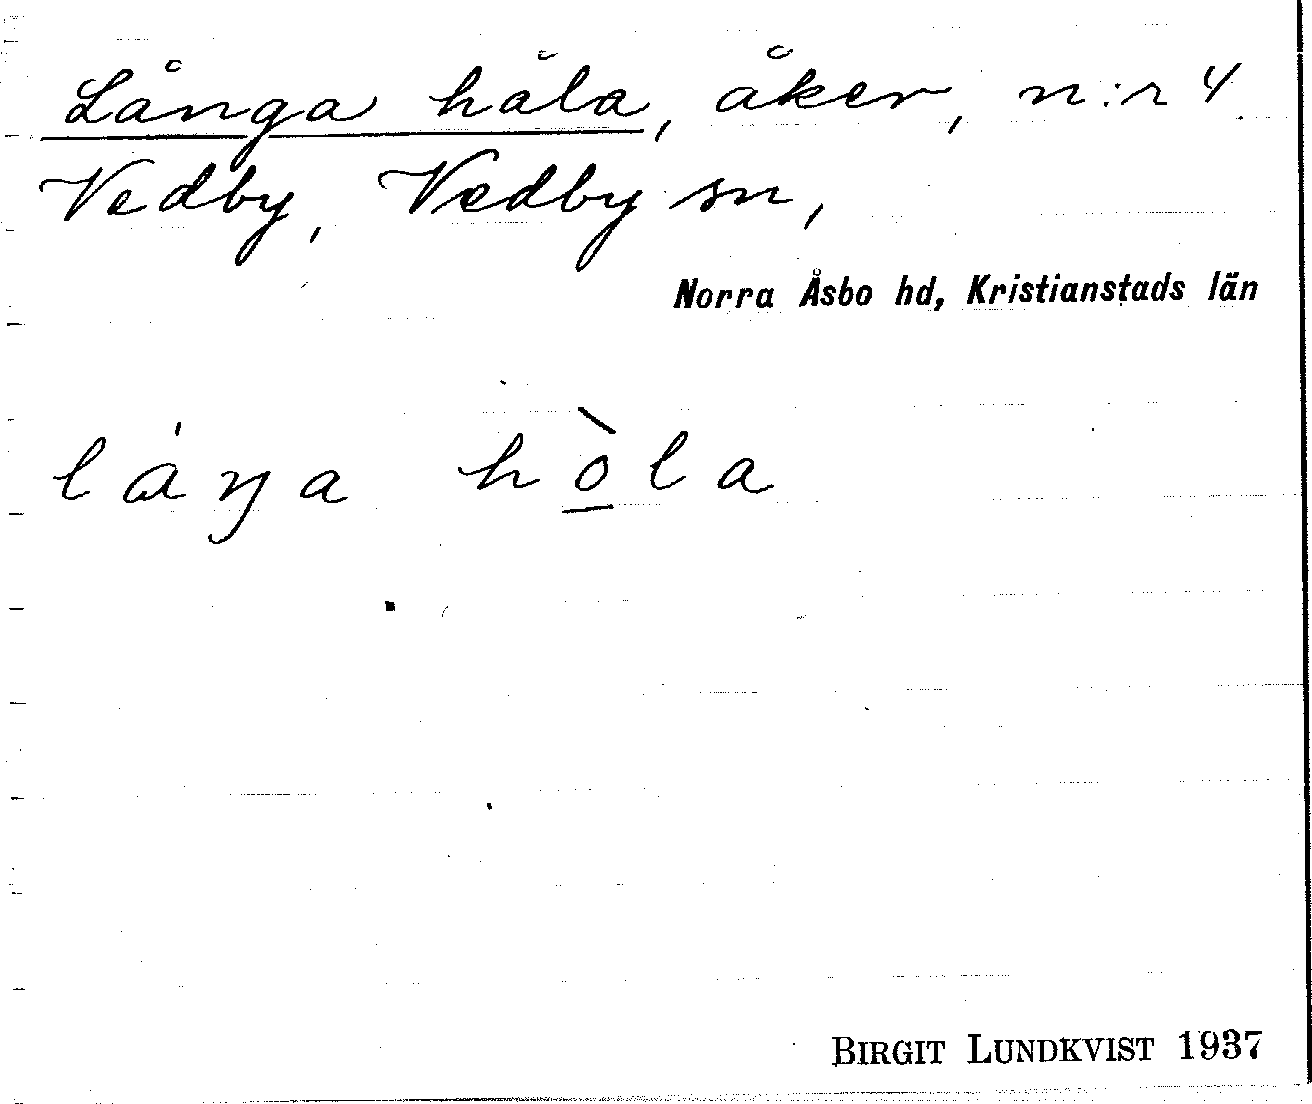 Långa håla, åker, n:r 4
Vedby, Vedby sn,
Norra Åsbo hd, Kristianstads län
låŋa hò̲la
BIRGIT LUNDKVIST 1937